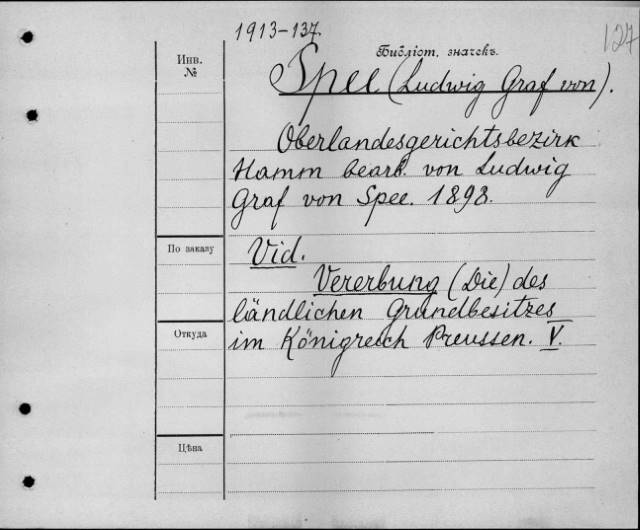 1913-137.
127
Инв.
№
Библіот. значекъ.
Spee (Ludwig Graf von).
Oberlandesgerichtsbezirk
Hamm bearb. von Ludwig
Graf von Spee. 1898.
По заказу
Vid.
Vererbung (Die) des
ländlichen Grundbesitzes
Откуда
im Königreich Preussen. V.
Цѣна